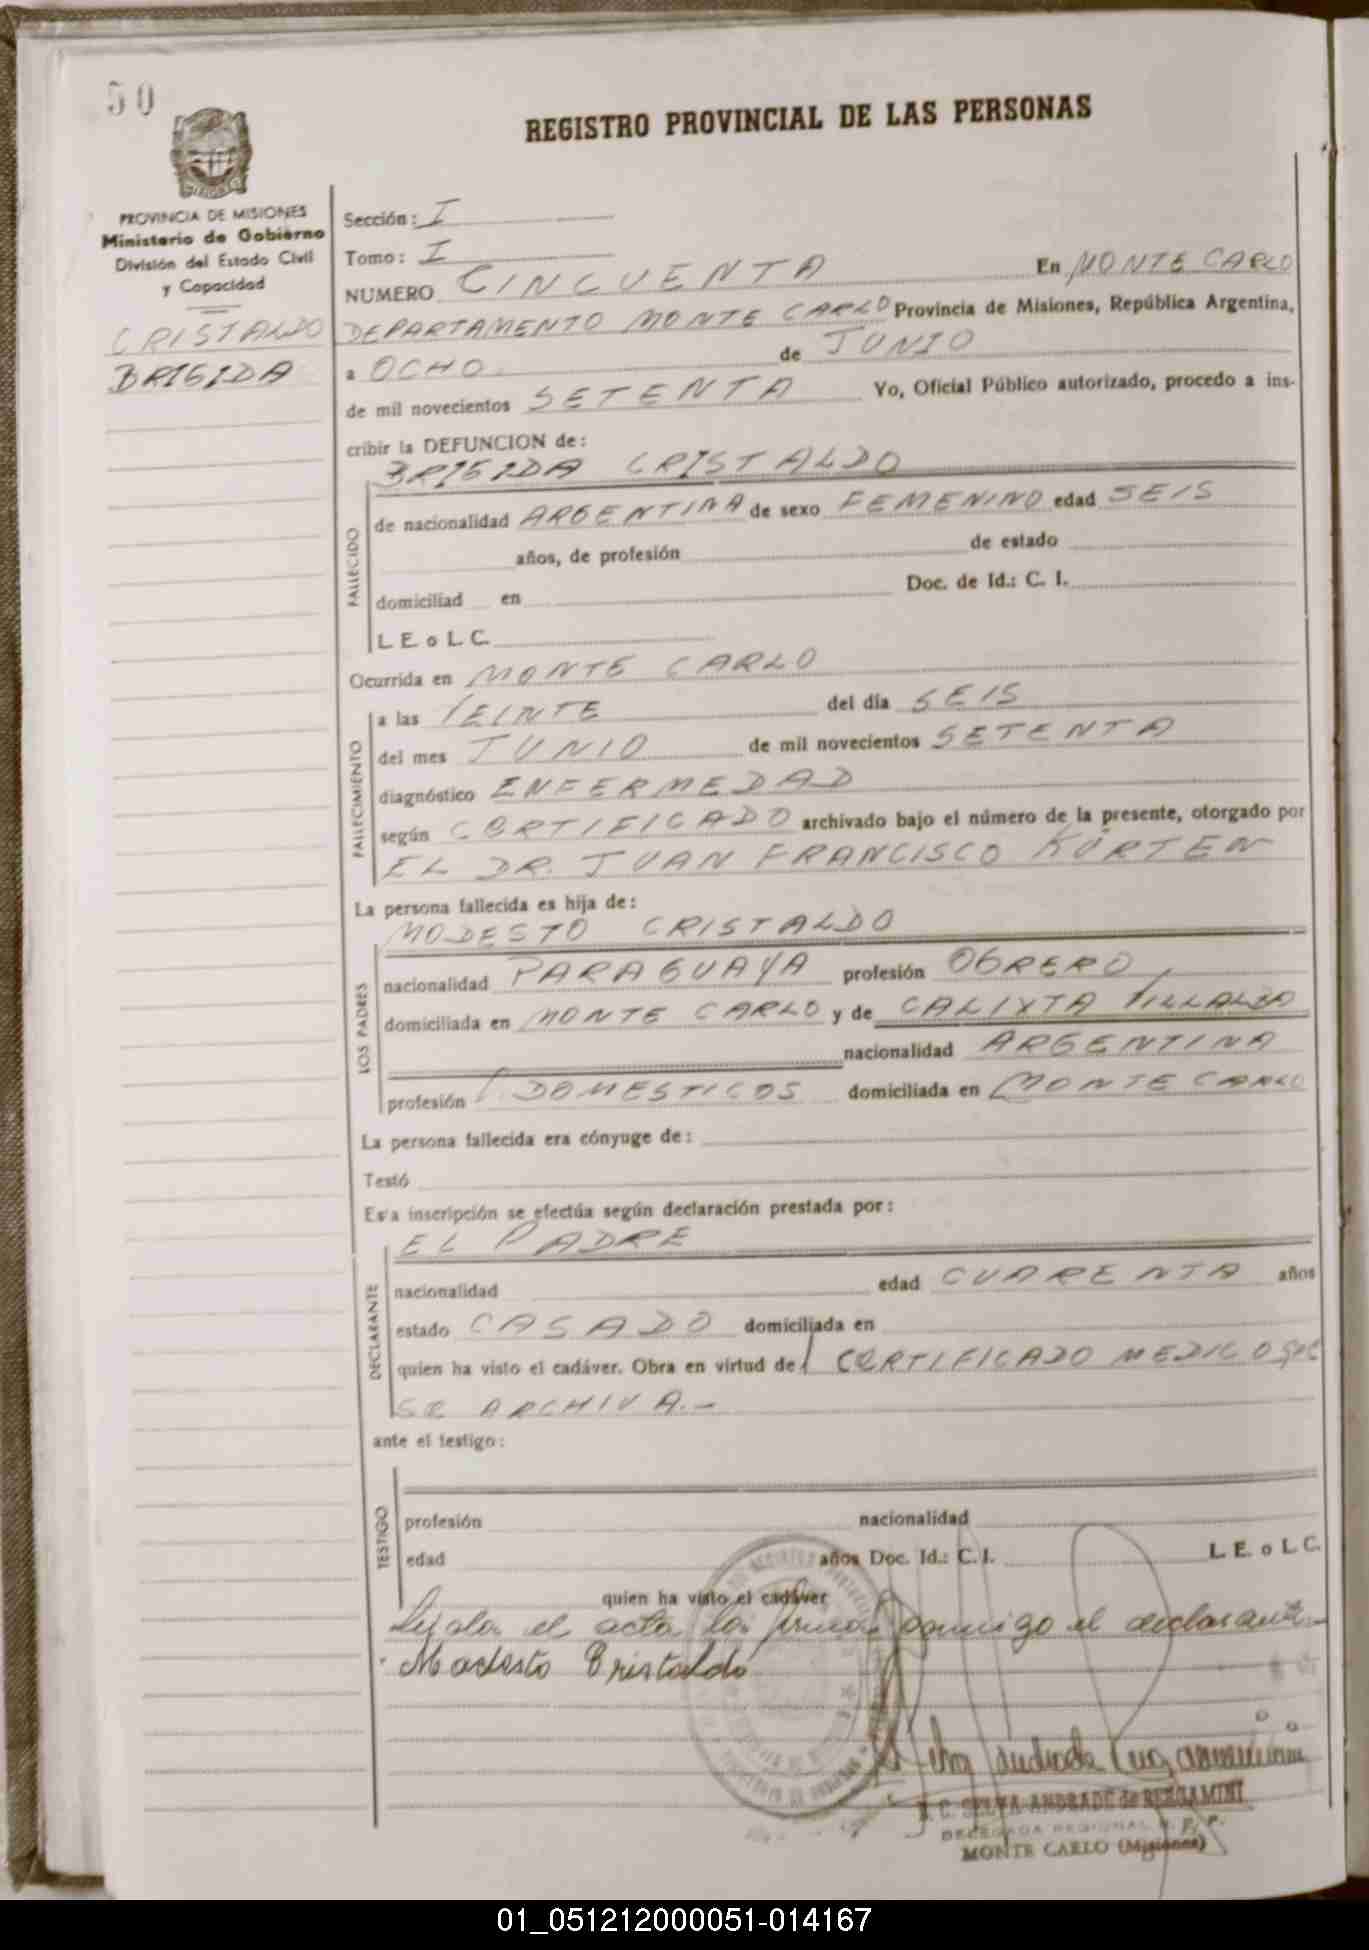 50
REGISTRO PROVINCIAL DE LAS PERSONAS
PROVINCIA DE MISIONES
Ministerio de Gobierno
División del Estado Civil
y Capacidad
CRISTALDO
BRIGIDA
Sección: I
Tomo: I
NUMERO CINCUENTA En MONTE CARLO
DEPARTAMENTO MONTE CARLO Provincia de Misiones, República Argentina,
a OCHO de JUNIO
de mil novecientos SETENTA Yo, Oficial Público autorizado, procedo a ins-
cribir la DEFUNCION de:
BRIGIDA CRISTALDO
FALLECIDO
de nacionalidad ARGENTINA de sexo FEMENINO edad SEIS
años, de profesión de estado
domiciliad en Doc. de Id.: C. I.
L. E. o L. C.
Ocurrida en MONTE CARLO
FALLECIMIENTO
a las VEINTE del día SEIS
del mes JUNIO de mil novecientos SETENTA
diagnóstico ENFERMEDAD
según CERTIFICADO archivado bajo el número de la presente, otorgado por
EL DR. JUAN FRANCISCO KÜRTEN
La persona fallecida es hija de:
MODESTO CRISTALDO
LOS PADRES
nacionalidad PARAGUAYA profesión OBRERO
domiciliada en MONTE CARLO y de CALIXTA VILLALBA
nacionalidad ARGENTINA
profesión DOMESTICOS domiciliada en MONTE CARLO
La persona fallecida era cónyuge de:
Testó
Esta inscripción se efectúa según declaración prestada por:
EL PADRE
DECLARANTE
nacionalidad edad CUARENTA años
estado CASADO domiciliada en
quien ha visto el cadáver. Obra en virtud de CERTIFICADO MEDICO QUE
SE ARCHIVA.-
ante el testigo:
TESTIGO
profesión nacionalidad
edad años Doc. Id.: C. I. L. E. o L. C.
quien ha visto el cadáver
Leída el acta la firma conmigo el declarante.-
Modesto Cristaldo
S. C. SELVA ANDRADE de BERGAMINI
DELEGADA REGIONAL R. P. P.
MONTE CARLO (Misiones)
01_051212000051-014167